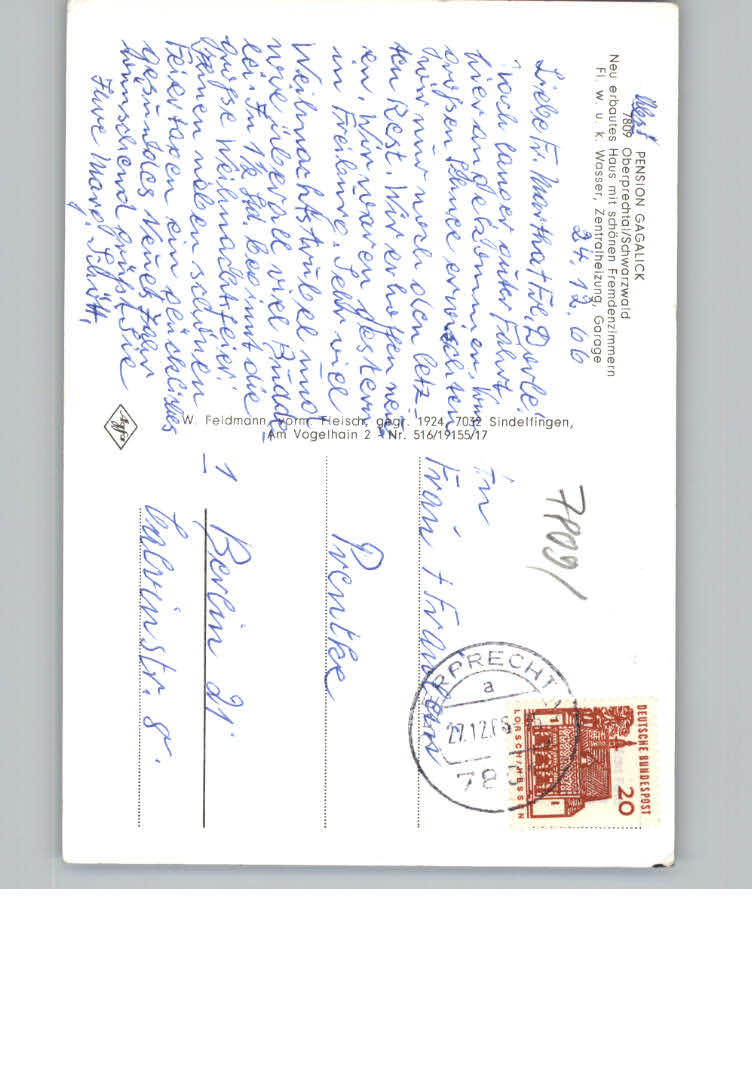 PENSION GAGALICK
7809 Oberprechtal/Schwarzwald
Neu erbautes Haus mit schönen Fremdenzimmern
Fl. w. u. k. Wasser, Zentralheizung, Garage
24.12.66
Liebe Fr. Martha + Frl. Dorle!
Nach langer guter Fahrt,
hier angekommen. Vom
großen Schnee erwischten
wir nur noch den letz-
ten Rest. Wir erhoffen neu-
en. Wir waren gestern
in Freiburg. Sehr viel
Weihnachtstrubel und
wie überall viel
lei. In 1½ Std. beginnt die
große Weihnachtsfeier.
Ihnen neben schönen
Feiertagen ein glückliches
gesundes Neues Jahr
wünschend grüßt Sie
Ihre Marg. Schütt.
W. Feldmann, vorm. Fleisch, gegr. 1924, 7032 Sindelfingen,
Am Vogelhain 2 - Nr. 516/19155/17
Agfa
7809/
An
Frau + Fräulein
Prentke
1 Berlin 21
Calvinstr. 8.
DEUTSCHE BUNDESPOST
20
LORSCH/HESSEN
ERPRECHT
a
27.12.6
78